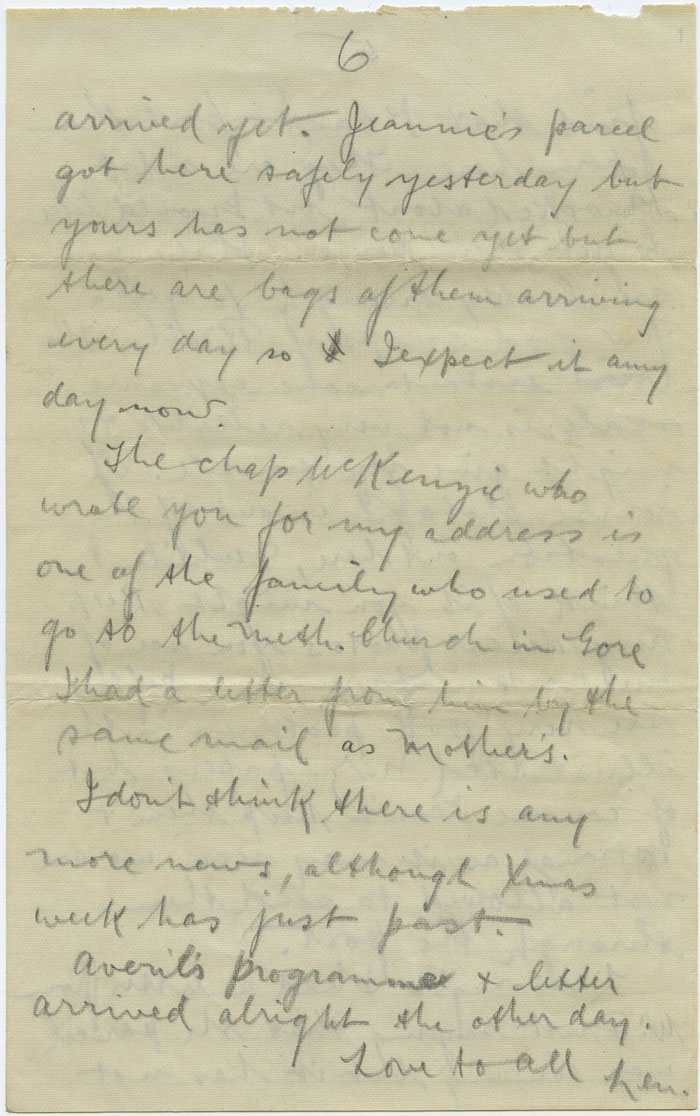 6
arrived yet. Jeannie's parcel
got here safely yesterday but
yours has not come yet but
there are bags of them arriving
every day so I expect it any
day now.
The chap McKenzie who
wrote you for my address is
one of the family who used to
go to the Meth. Church in Gore
I had a letter from him by the
same mail as Mother's.
I don't think there is any
more news, although Xmas
week has just past.
Averil's programme + letter
arrived alright the other day.
Love to all Len.